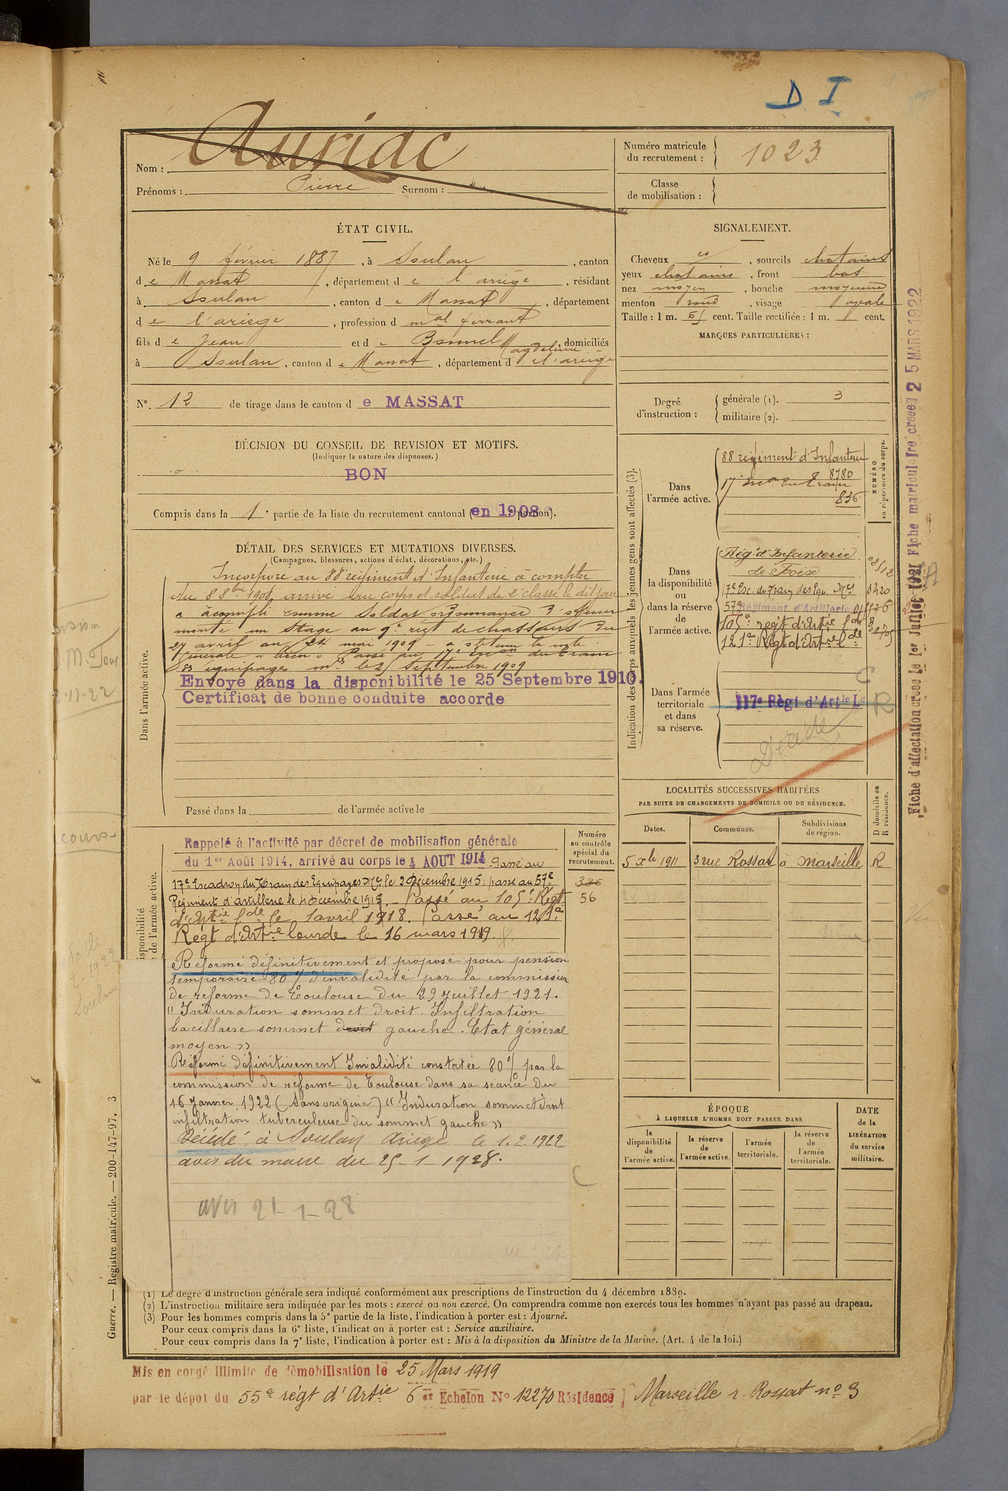 D I
Auriac
Nom :
Prénoms : Pierre Surnom :
Numéro matricule
du recrutement : 1023
Classe
de mobilisation :
ÉTAT CIVIL.
Né le 9 février 1887, à Soulan, canton
de Massat, département de l'ariège, résidant
à Soulan, canton de Massat, département
de l'ariège, profession d mal ferrant
fils de Jean et de Bonnel Magdeleine, domiciliés
à Soulan, canton de Massat, département de l'ariège
N°. 12 de tirage dans le canton de MASSAT
DÉCISION DU CONSEIL DE REVISION ET MOTIFS.
(Indiquer la nature des dispenses.)
BON
Compris dans la 1e partie de la liste du recrutement cantonal (en 1908
SIGNALEMENT.
Cheveux , sourcils chatains
yeux chatains, front bas
nez moyen, bouche moyenne
menton rond, visage ovale
Taille : 1 m. 65 cent. Taille rectifiée : 1 m. cent.
MARQUES PARTICULIÈRES :
Degré
d'instruction :
générale (1). 3
militaire (2).
DÉTAIL DES SERVICES ET MUTATIONS DIVERSES.
(Campagnes, blessures, actions d'éclat, décorations, etc.)
Dans l'armée active.
Incorporé au 88e régiment d'Infanterie à compter
du 8 8bre 1908, arrivé au corps et soldat de 2e classe le dit jour
a accompli comme soldat ordonnance
monté un stage au 9e régt de chasseurs du
27 avril au 24 mai 1909 obtenu la note
Passé au 17e Escon du train
des équipages mres le 21 septembre 1909
Envoyé dans la disponibilité le 25 Septembre 1910.
Certificat de bonne conduite accorde
Passé dans la de l'armée active le
Indication des corps auxquels les jeunes gens sont affectés (3).
NUMÉRO
au répertoire du corps.
Dans
l'armée active.
88 régiment d'Infanterie
8780
17e Escon du Train
836
Dans
la disponibilité
ou
dans la réserve
de
l'armée active.
Rég. d'Infanterie
de Foix
17e Esc. du Train des Equ. Mres
57e Régiment d'Artillerie
105e régt d'Artie lde
121e Régt d'Artie lde
Dans l'armée
territoriale
et dans
sa réserve.
117e Régt d'Artie Lde
Décédé
R
LOCALITÉS SUCCESSIVES HABITÉES
PAR SUITE DE CHANGEMENTS DE DOMICILE OU DE RÉSIDENCE.
Dates.
Communes.
Subdivisions
de région.
D domicile ou
R résidence.
5 Xbre 1911 3 rue Rossat à Marseille R
Rappelé à l'activité par décret de mobilisation générale
du 1er Août 1914, arrivé au corps le 4 AOUT 1914 Passé au
17e Escadron du Train des Equipages Mres le 2 Décembre 1915; passé au 57e
Régiment d'Artillerie le 4 Décembre 1915. Passé au 105e Régt
d'Artie lde le 1 avril 1918. Passé au 121e
Régt d'Artie lourde le 16 mars 1919
Numéro
au contrôle
spécial du
recrutement.
56
Réformé définitivement et proposé pour pension
temporaire 80 % d'invalidité par la commission
de réforme de Toulouse du 29 juillet 1921.
"Induration sommet droit. Infiltration
bacillaire sommet droit gauche. Etat général
moyen"
Réformé définitivement Invalidité constatée 80% par la
commission de réforme de Toulouse dans sa séance du
16 janvier 1922 (sans origine) "Induration sommet droit
infiltration tuberculeuse du sommet gauche"
Décédé à Soulan Ariège le 1.2.1922
avis du maire du 25-1-1928.
avis 21-1-28
ÉPOQUE
À LAQUELLE L'HOMME DOIT PASSER DANS
la
disponibilité
de
l'armée active.
la réserve
de
l'armée active.
l'armée
territoriale.
la réserve
de
l'armée
territoriale.
DATE
de la
LIBÉRATION
du service
militaire.
(1) Le degré d'instruction générale sera indiqué conformément aux prescriptions de l'instruction du 4 décembre 1889.
(2) L'instruction militaire sera indiquée par les mots : exercé ou non exercé. On comprendra comme non exercés tous les hommes n'ayant pas passé au drapeau.
(3) Pour les hommes compris dans la 5e partie de la liste, l'indication à porter est : Ajourné.
Pour ceux compris dans la 6e liste, l'indication à porter est : Service auxiliaire.
Pour ceux compris dans la 7e liste, l'indication à porter est : Mis à la disposition du Ministre de la Marine. (Art. 4 de la loi.)
Mis en congé illimité de démobilisation le 25 Mars 1919
par le dépôt du 55e régt d'Artie 6e Echelon N° 12270 Résidence Marseille r. Rossat n° 3
Guerre. — Registre matricule. — 200-147-97. 3
Fiche d'affectation créée le 1er Juillet 1921 Fiche matricule créée 25 MARS 1922